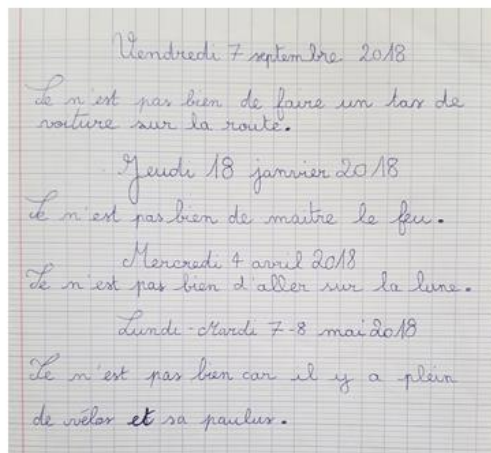 Vendredi 7 septembre 2018
Ce n'est pas bien de faire un tas de
voiture sur la route.
Jeudi 18 janvier 2018
Ce n'est pas bien de maitre le feu.
Mercredi 4 avril 2018
Ce n'est pas bien d'aller sur la lune.
Lundi-Mardi 7-8 mai 2018
Ce n'est pas bien car il y a plein
de vélos et sa paulus.